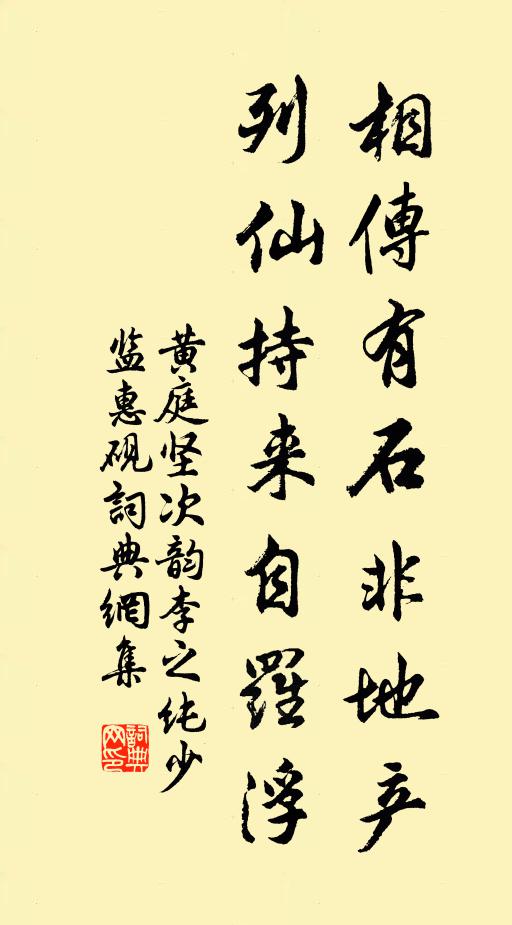 相傳有石非地产
列仙持来自羅浮
黄庭坚次韵李之纯少
监惠砚詞典網集
詞典
网印